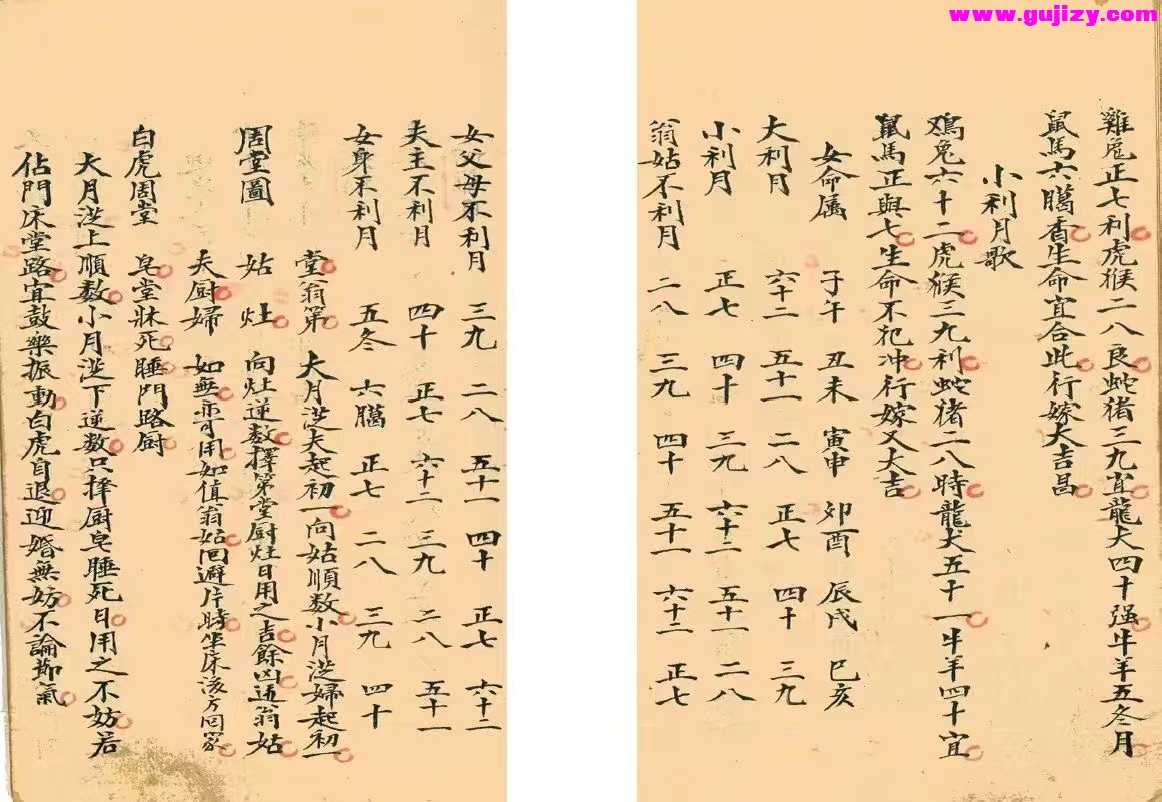 www.gujizy.com
雞兔正七利虎猴二八良蛇猪三九宜龍犬四十强牛羊五冬月
鼠馬六臈香生命宜合此行嫁大吉昌
小利月歌
鸡兔六十二虎猴三九利蛇猪二八時龍犬五十一牛羊四十宜
鼠馬正與七生命不犯冲行嫁又大吉
女命属 子午 丑未 寅申 卯酉 辰戌 巳亥
大利月 六十二 五十一 二八 正七 四十 三九
小利月 正七 四十 三九 六十二 五十一 二八
翁姑不利月 二八 三九 四十 五十一 六十二 正七
女父母不利月 三九 二八 五十一 四十 正七 六十二
夫主不利月 四十 正七 六十二 三九 二八 五十一
女身不利月 五冬 六臈 正七 二八 三九 四十
堂翁第 大月從夫起初一向姑順数小月從婦起初一
周堂圖 姑 灶 向灶逆数擇第堂厨灶日用之吉餘凶遇翁姑
夫厨婦 如無亦可用如值翁姑回避片時坐床後方回家
白虎周堂 皂堂牀死睡門路厨
大月從上順数小月從下逆数只择厨皂睡死日用之不妨若
佔門床堂路宜鼓樂振動白虎自退迎婚無妨不論節氣